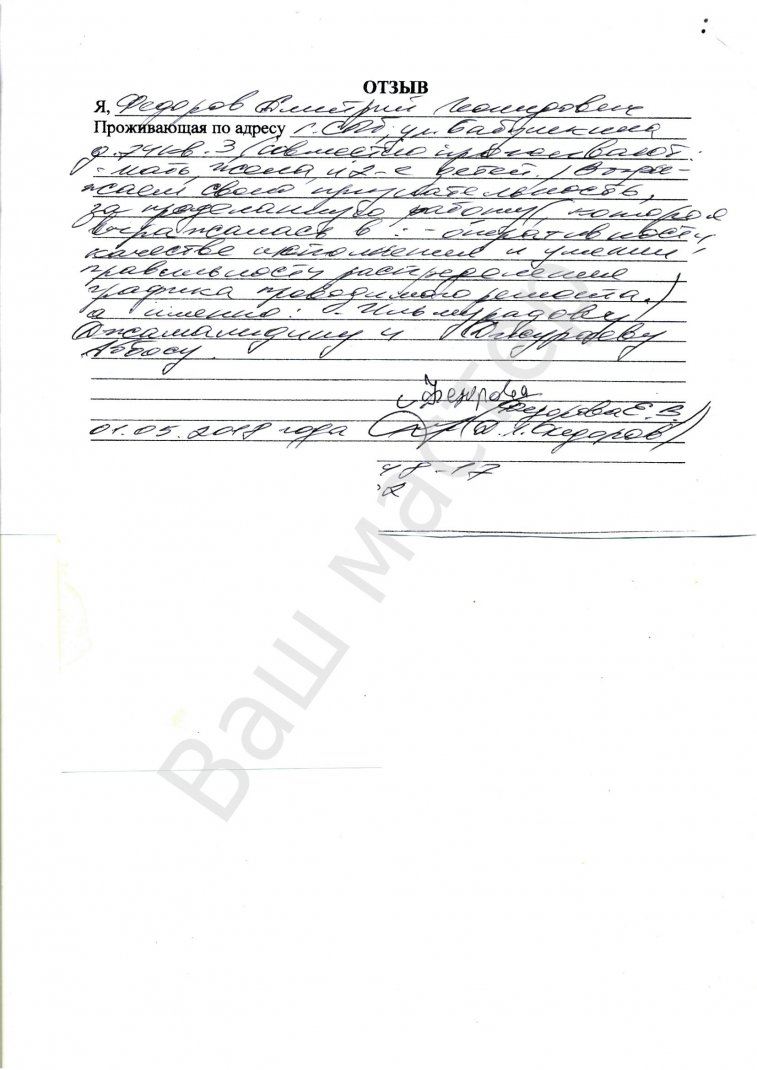 ОТЗЫВ
Я, Федоров Дмитрий Леонидович
Проживающая по адресу г. СПб, ул. Бабушкина
д. 74 кв. 3 (совместно проживают:
- мать, жена и 2-е детей.) Выра-
жаем свою признательность,
за проделанную работу (которая
выражалась в: - оперативности,
качестве исполнения и умении,
правильности распределения
графика проводимого ремонта.)
а именно: Ильмурадову
Джамалидину и Джураеву
Аббосу.
Федорова
Федорова Е. В.
01.05.2018 года (Д. Л. Федоров)
48-17
2
Ваш мастер